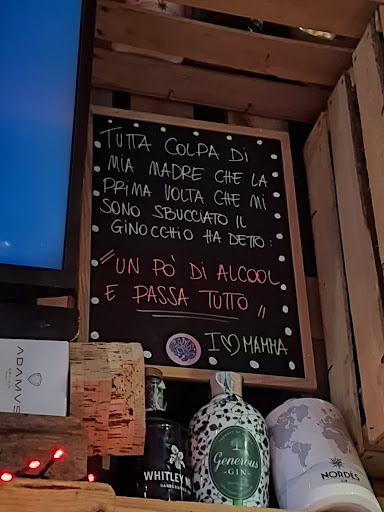 TUTTA COLPA DI
MIA MADRE CHE LA
PRIMA VOLTA CHE MI
SONO SBUCCIATO IL
GINOCCHIO HA DETTO:
"UN PÒ DI ALCOOL
E PASSA TUTTO"
I♡MAMMA
ADAMVS
WHITLEY
Generous
GIN
NORDÉS
GIN